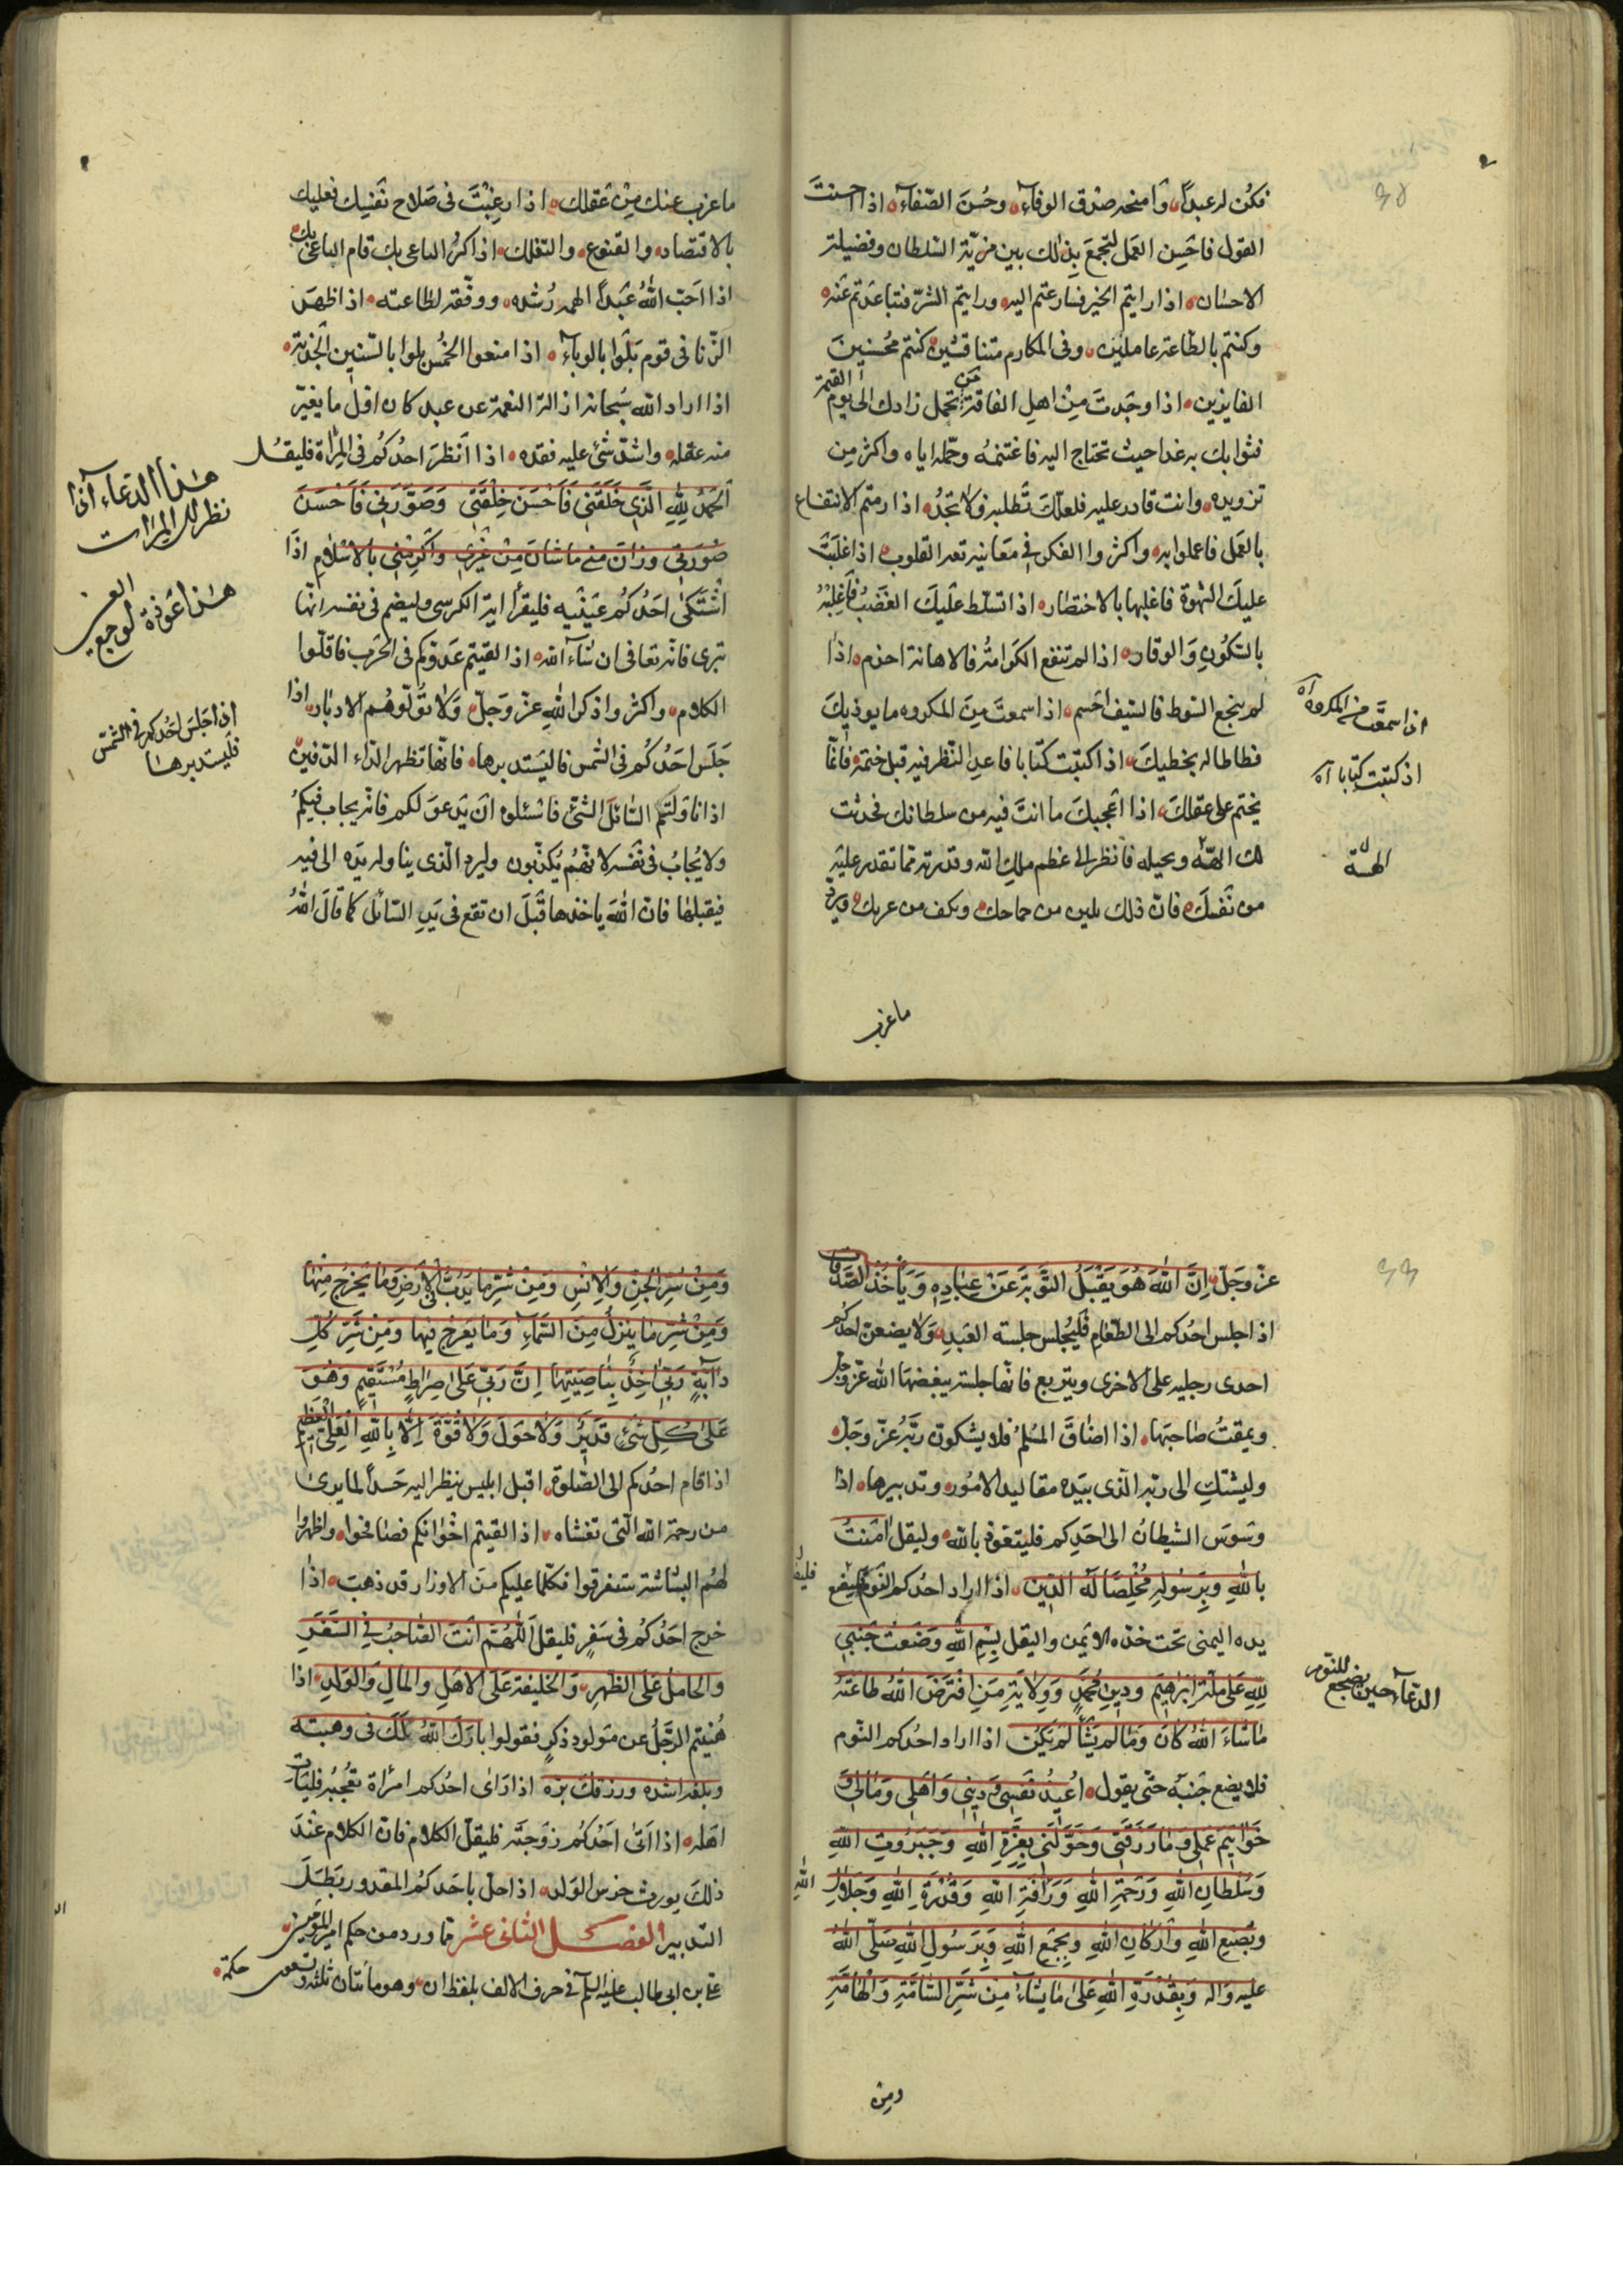 فكُن له عبداً، وامنحه صدق الوفاء، وحُسنَ الصّفاء، اذا احسنتَ
القول فاحَسِن العَمل لتجمعَ بذلك بين مزيّة اللسان وفضيلة
الاحسان، اذا رايتم الخير فسارعتم اليه، ورايتم الشرّ فتباعدتم عنه
وكنتم بالطّاعة عاملين، وفى المكارم متنافسين كنتم محُسنين
الفايزين، اذا وجَدتَ مِنْ اهلِ الفاقة مَن تحمل زادك الى يوم القيمة
فتوابك به غدا حيث تحتاج اليه فاغتنمهُ وحمّله اياه واكثر مِن
تزويده، وانت قادر عليه فلعلّكَ تَطلبه ولا تجدُه، اذا رمتم الانتفاع
بالعَمل فاعملوا به، واكثروا الفكر فى معَانيه تعه القلوب، اذا غلبَتْ
عليكَ الشهوة فاغلبها بالاختصار، اذا تسلّط عليكَ الغَضَبُ فاَغلبْهُ
بالسّكُونِ وَالوقار، اذا لم تنفع الكَرامةُ فالاهانة احزم، اذا
لم ينجع السّوط فالسّيف احَسم، اذا سمعتَ مِنَ المكروه ما يوذيكَ
فطاطا له يخطيكَ، اذا كتبت كتابا فاعدِ النّظر فيه قبل ختمه فانّما
يختم على عقلكَ، اذا اعجبكَ ما انتَ فيه من سلطانك فحدثت
لك ابّهة ومخيله فانظر الى عظم ملكِ الله وقدرته ممّا تقدر عليه
من نَفسكَ، فانّ ذلك يلين من جماحك، ويكف من غربك، ويردّ
ما غرب
اذا سمعتَ من المكروه آه
اذ كتبت كتابا آه
الهـّة
ما غرب عنك مِنْ عَقلك، اذا رغِبْتَ فى صَلاح نَفسِك فعليك
بالاقتصاد، والقنوع، والتقلك، اذا كرُ الباغى بك قام الباغى بك
اذا احَبّ اللهُ عَبداً الهمه رُشده، ووفّقه لطاعته، اذا ظهَرَ
الزّنا فى قوم بَلَوا بالوباء، اذا منعوا الخمُس بلوا بالسّنين الجَدبة
اذا اراد الله سُبحانه ازالة النعمة عن عبد كان اوّل ما يغيّر
منه عقله، واشدّ شئ عليه فقده، اذا انَظرَ احدُكُم فى المِراة فليقُل
اَلحَمدُ لِلّهِ الَّذى خَلَقَنِى فَاَحْسَنَ خِلْقَتى وَصَوّرَنى فَاَحْسَنَ
صُورَتى وزانَ منى ما شانَ مِنْ غَيرى واكَرمَنِى بالاسْلامِ اذَا
اشْتَكىَ احَدُكُم عَينَيه فليقَرأ اية الكرسى وليضم فى نفسه انها
تبرى فانه تعافى ان شاء الله، اذا لقيتم عَدوّكم فى الحَرب فاقلّوا
الكلام، واكثروا ذكر اللهِ عزّ وَجلّ، وَلا توَلّوهُم الادبار، اذا
جَلسَ احَدُكُم فى الشمس فاليَستدبرها، فانّها تظهر الدّاء الدّفين
اذا ناوَلتم السّائلَ الشئ فاسئلوه انَ يَدعوَ لكم فانّه يجاب فيكمُ
ولا يُجابُ فى نَفسه لانّهمُ يُكذّبون وليرد الّذى يناوله يَده الى فيه
فيقبلها فانّ اللهَ ياخذها قَبْلَ ان تقع فى يَدِ السّائل كما قالَ اللهُ
هذا الدعاء اذا
نظر لك المِرات
هذا عوذة لوجع العين
اذا جَلسَ احَدكم فى الشمّس
فليستدبرها
عزّ وَجلّ، اِنَّ اللهَ هُوَ يَقْبَلُ التَّوبَةَ عَنْ عِبَادِهِ وَيَاْخُذُ الصَّدَقاتِ
اذا جلس احدُكم الى الطّعام فليَجلس جلسة العَبدِ، وَلا يضعنّ احدكم
احدى رجليه على الاخرى ويتربع فانّها جلسة يبغضهَا الله عزّ وجلّ
ويمقتُ صَاحبَها، اذا اضاقَ المسُلمُ فلا يشكونّ ربّهُ عزّ وَجلّ،
وليشتكِ الى ربّه الّذى بيَده مقاليد الامُور، وتدبيرها، اذا
وسَوسَ الشيطانُ الى احَدِكم فليتعّوذ بالله، وليقل امَنتُ
باللهِ وبِرَسوُلِهِ مُخْلِصًا لَهُ الدّين، اذا اراد احدُكم النّوم فليضع
يده اليمنى تحت خدّه الايَمن واليقل بِسْمِ اللهِ وضَعت جَنبى
لِلهِ عَلى مِلّة ابرَاهِيَم ودينِ محُمدٍ وَوِلايَةِ مَن افترَضَ اللهُ طاعَتهُ
مَا شاءَ اللهُ كان ومَا لم يَشأ لمَ يَكُن اذا اراد احدُكم النّوم
فلا يضع جَنبَهُ حتّى يقول، اُعيذُ نَفسى وَدينى وَاَهلى وَمَالى وَ
خَواتيمَ عَملى وما رَزَقنى وَخَوّلَنى بعِزّةِ اللهِ وَجَبروُتِ اللهِ
وَسُلطانِ اللهِ وَرَحمَةِ اللهِ وَرَافةِ اللهِ وَقُدْرَةِ اللهِ وَجَلالِ الله
وبصُنعِ اللهِ واَركانِ اللهِ وبِجَمعِ اللهِ وَبِرَسُولِ اللهِ صَلّى اللهُ
عليه وَاله وَبِقُدْرَةِ اللهِ عَلى مَا يَشاءُ مِنْ شَرِّ السّامّةِ وَالهَامّةِ
ومن
الدّعاء حين يضجع للنوّم
وَمِنْ شرّ الجِنّ وَالانْسِ وَمِنْ شَرِّ ما يَدُبُّ فى الاَرضِ وما يَخرجُ مِنْها
وَمِنْ شرِّ ما يَنزلُ مِنَ السّماءِ وَمَا يَعرج فيها ومَنِ شرّ كلِّ
دَابّةٍ رَبّى اخِذٌ بِنَاصِيَتِها اِنَّ رَبّى عَلى صِراطٍ مُسْتَقيمٍ وَهُوَ
عَلى كُلِّ شَئٍ قَديرٌ وَلا حَولَ وَلا قُوّةَ اِلاّ بِاللهِ الْعَلِىّ الْعَظيمِ
اذا قام احدُكم الى الصّلوة، اقبل ابليس ينظر اليه حَسداً لما يرى
من رحمة الله الّتى تغشاه، اذا لقيتم اخْوانكم فصَافحوا، واظهروا
لهُم البشاشة ستفرقوا فكلما عليكم من الاوزار قد ذهبت، اذا
خرج احَدُكُم فى سَفرٍ فليقل اَللّهُمَّ اَنتَ الصّاحِبُ فِى السَّفَرِ
والحامل عَلى الظّهر، وَالخليفة عَلى الاهَلِ والمالِ وَالولَدِ، اذا
هُنيتم الرّجُل عن مَولود ذكرٍ فقولوا بارَكَ اللهُ لَكَ فى وهبته
وبلغه اشدّه ورزقك برّه اذا رَاى احدُكم امرأة تعُجبُه فليَات
اهَله، اذا اَتى احَدُكُم زوَجتَه فليقلّ الكلام فانّ الكلام عنْدَ
ذلكَ يورث خرس الوَلد، اذا حلّ باحَدكُم المقدور بَطَلَ
التدبير الفصــل الثانى عشر ممّا ورد من حكم امير المؤمنين
على بن ابى طالب عليه السّلم فى حرف الالف بلفظ ان، وهو مأتان ثلثة وتسعون حكمة